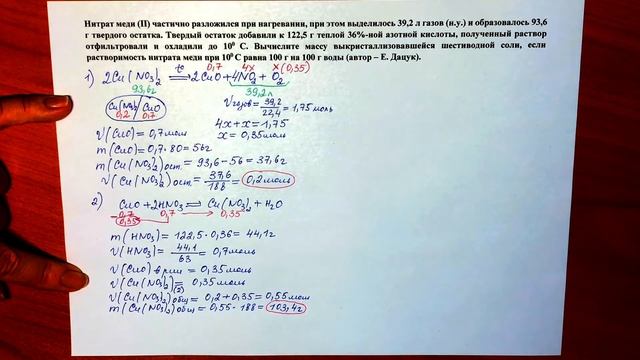 Нитрат меди (II) частично разложился при нагревании, при этом выделилось 39,2 л газов (н.у.) и образовалось 93,6
г твердого остатка. Твердый остаток добавили к 122,5 г теплой 36%-ной азотной кислоты, полученный раствор
отфильтровали и охладили до 10⁰ С. Вычислите массу выкристаллизовавшейся шестиводной соли, если
растворимость нитрата меди при 10⁰ С равна 100 г на 100 г воды (автор – Е. Дацук).
0,7 4x x (0,35)
1) 2Cu(NO₃)₂ t° → 2CuO + 4NO₂ + O₂
93,6г 39,2л
Cu(NO₃)₂ / CuO
0,2 0,7
ν газов = 39,2/22,4 = 1,75 моль
4x + x = 1,75
x = 0,35 моль
ν(CuO) = 0,7 моль
m(CuO) = 0,7 · 80 = 56г
m(Cu(NO₃)₂) ост. = 93,6 - 56 = 37,6г
ν(Cu(NO₃)₂) ост = 37,6/188 = 0,2 моль
2) CuO + 2HNO₃ ⇌ Cu(NO₃)₂ + H₂O
0,7 0,7 → 0,35
0,35
m(HNO₃) = 122,5 · 0,36 = 44,1г
ν(HNO₃) = 44,1/63 = 0,7 моль
ν(CuO) в р-ии = 0,35 моль
ν(Cu(NO₃)₂)(2) = 0,35 моль
ν(Cu(NO₃)₂) общ = 0,2 + 0,35 = 0,55 моль
m(Cu(NO₃)₂) общ = 0,55 · 188 = 103,4г